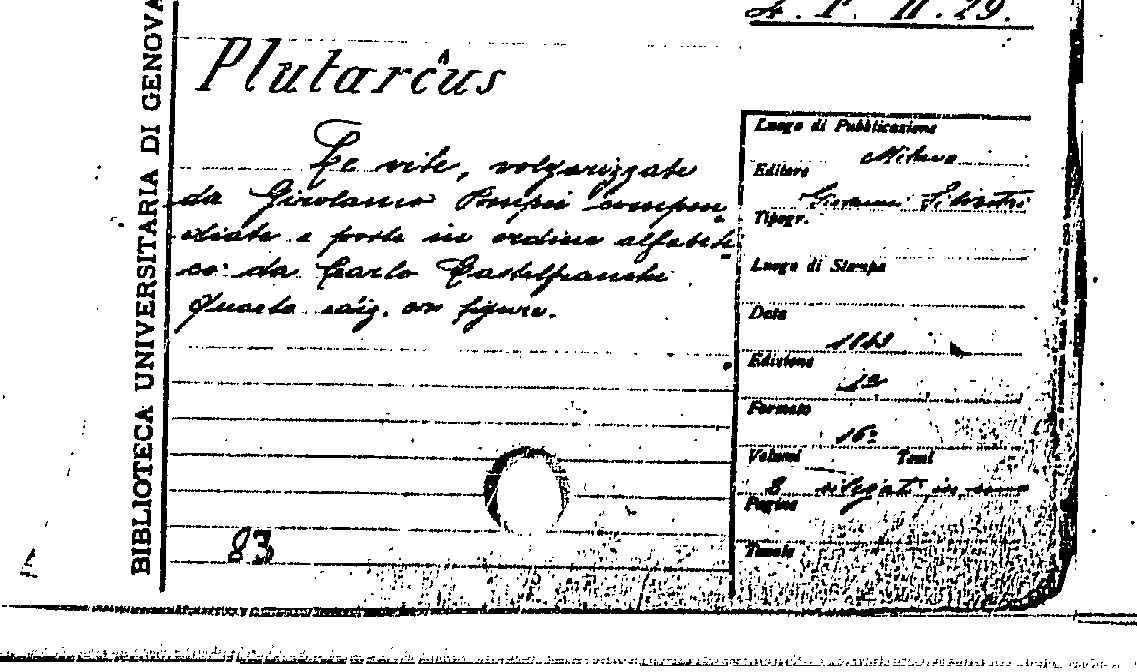 4. P. II. 29.
BIBLIOTECA UNIVERSITARIA DI GENOVA
Plutarcus
Le vite, volgarizzate
da Girolamo Pompei compen-
diate e poste in ordine alfabeti-
co da Carlo Castelfranchi
Quarta ediz. con figure.
83
Luogo di Pubblicazione
Milano
Editore
Giovanni Silvestri
Tipogr.
Luogo di Stampa
Data
Edizione
Formato
16º
Volumi Tomi
2 rilegati in uno
Pagine
Tavole